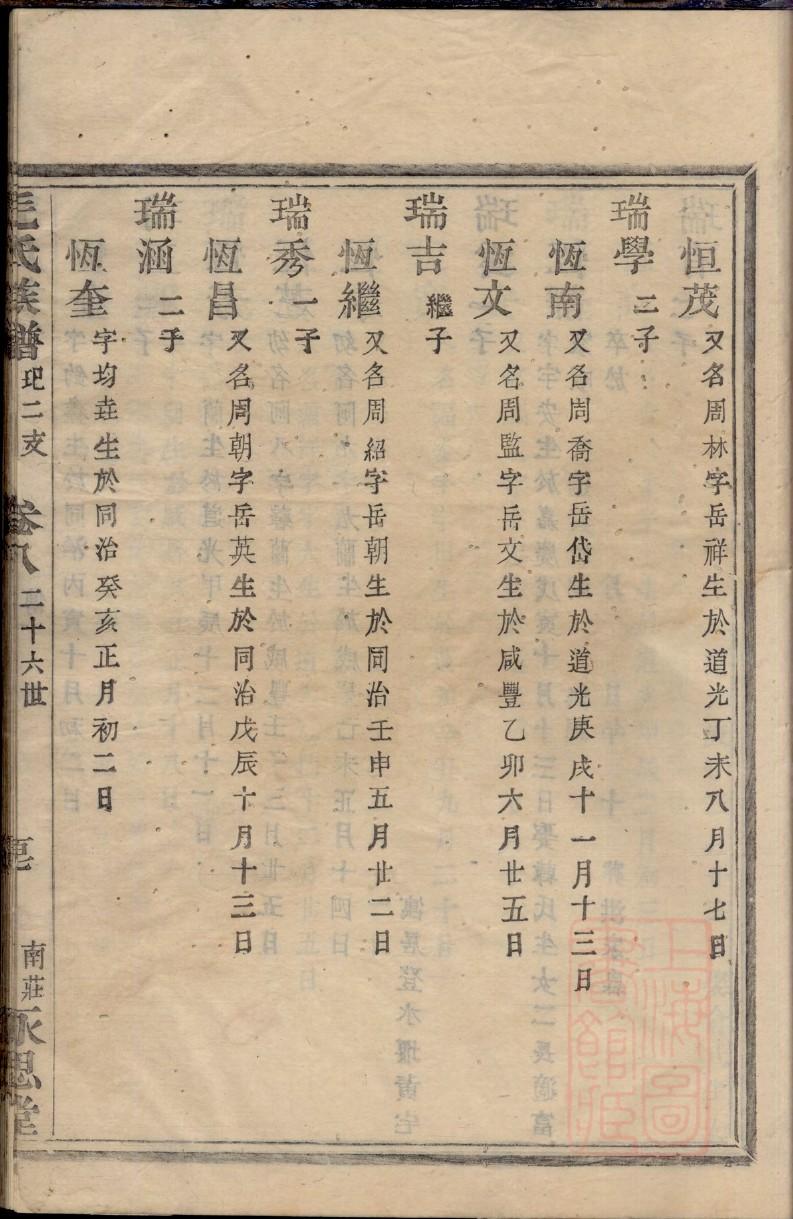 恒茂 又名周林字岳祥生於道光丁未八月十七日
瑞學 二子
恆南 又名周喬字岳岱生於道光庚戌十一月十三日
恆文 又名周監字岳文生於咸豐乙卯六月廿五日
瑞吉 繼子
恆繼 又名周紹字岳朝生於同治壬申五月廿二日
瑞秀 一子
恆昌 又名周朝字岳英生於同治戊辰十月十三日
瑞涵 二子
恆奎 字均垚生於同治癸亥正月初二日
毛氏族譜 玘二支 卷八 二十六世 南莊永思堂
上海圖書館藏